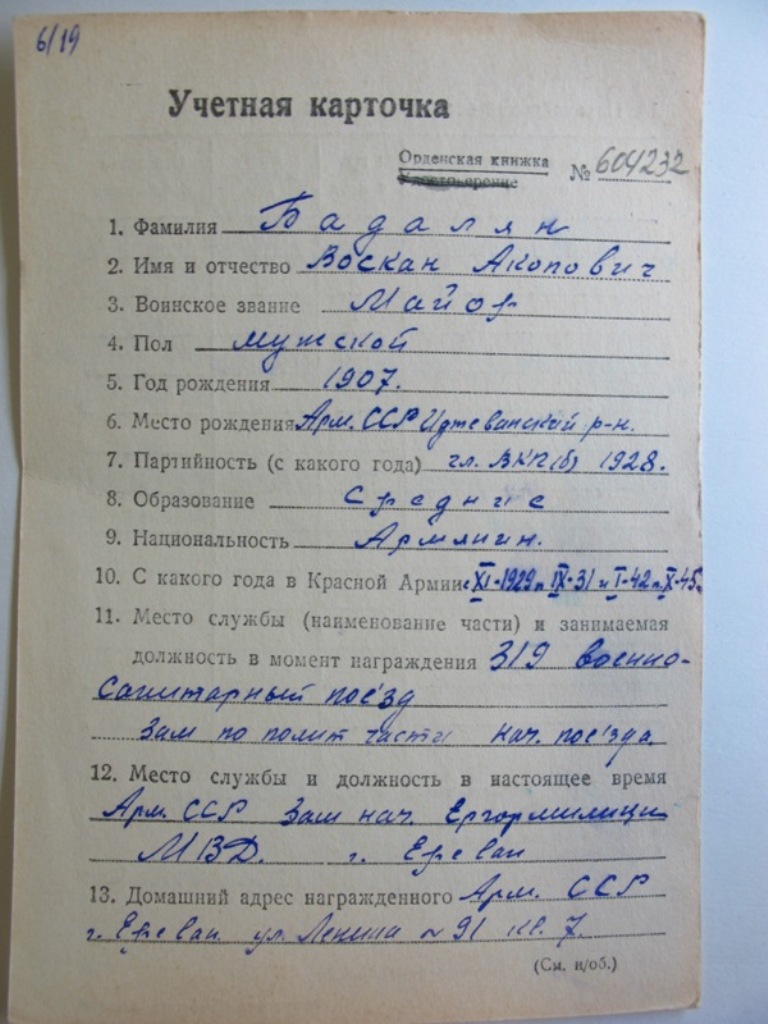 6/19
Учетная карточка
Орденская книжка
Удостоверение
№ 604232
1. Фамилия Бадалян
2. Имя и отчество Воскан Акопович
3. Воинское звание Майор
4. Пол мужской
5. Год рождения 1907.
6. Место рождения Арм. ССР Иджеванский р-н.
7. Партийность (с какого года) чл. ВКП(б) 1928.
8. Образование Среднее
9. Национальность Армянин.
10. С какого года в Красной Армии с XI-1929 п. IX-31 и I-42 п. X-45.
11. Место службы (наименование части) и занимаемая
должность в момент награждения 319 военно-
санитарный поезд
Зам по полит части нач. поезда.
12. Место службы и должность в настоящее время
Арм. ССР Зам нач. Ергормилиции
МВД. г. Ереван
13. Домашний адрес награжденного Арм. ССР
г. Ереван. ул. Ленина № 91 кв. 7.
(См. н/об.)